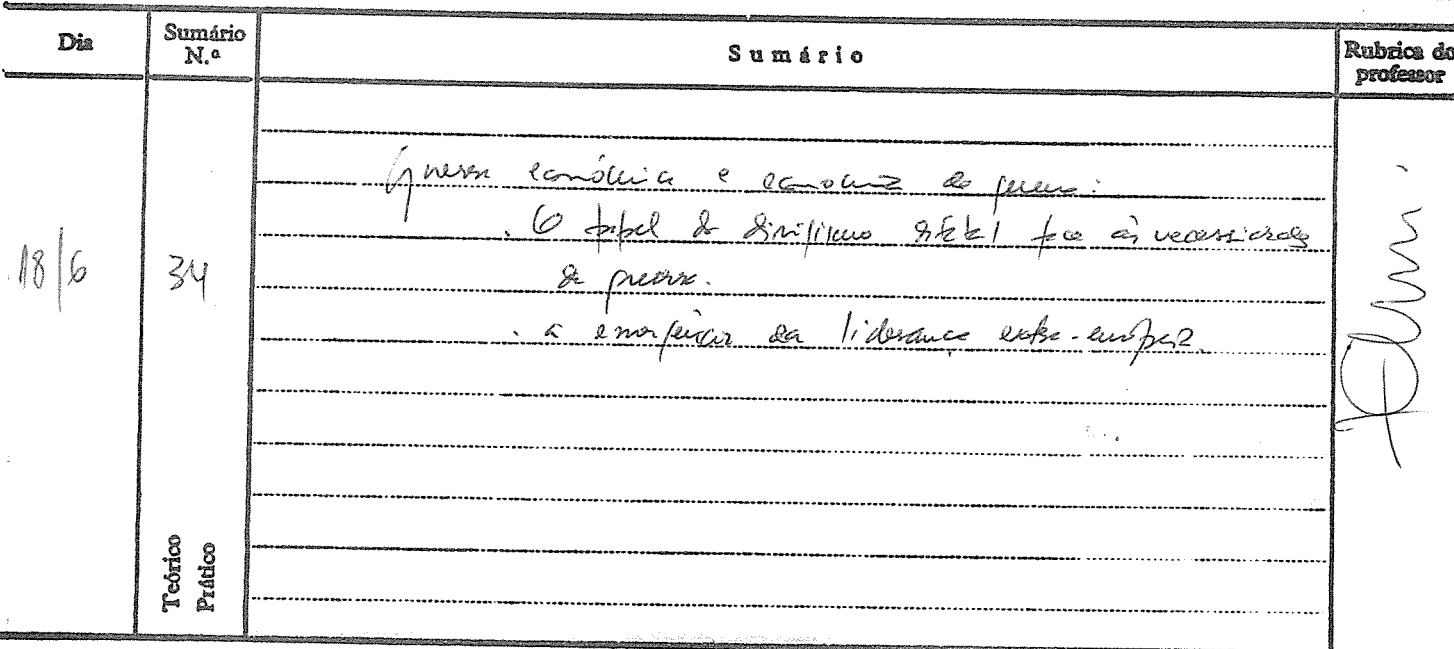 Dia
Sumário N.º
Sumário
Rubrica do professor
18/6
34
Guerra económica e economia de guerra:
. O papel do dirigismo estatal face às necessidades
de guerra.
. a emergência da liderança extra-europeia.
Teórico
Prático